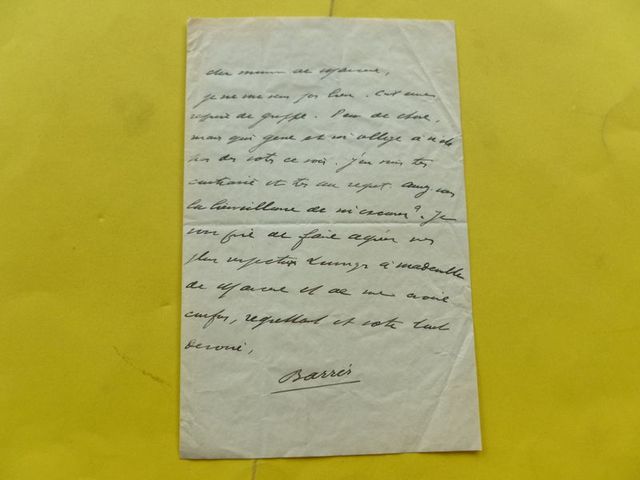 cher monsieur de
je ne me sens pas bien. C'est une
reprise de grippe. Peu de chose,
mais qui gêne et m'oblige à n'être
pas des vôtres ce soir. J'en suis très
contrarié et très au regret. Aurez vous
la bienveillance de m'excuser? Je
vous prie de faire agréer mes
plus respectueux hommages à mademoiselle
de et de me croire
confus, regrettant et votre tout
dévoué,
Barrès